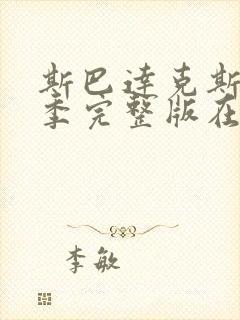 斯巴达克斯
季完整版在
李敏